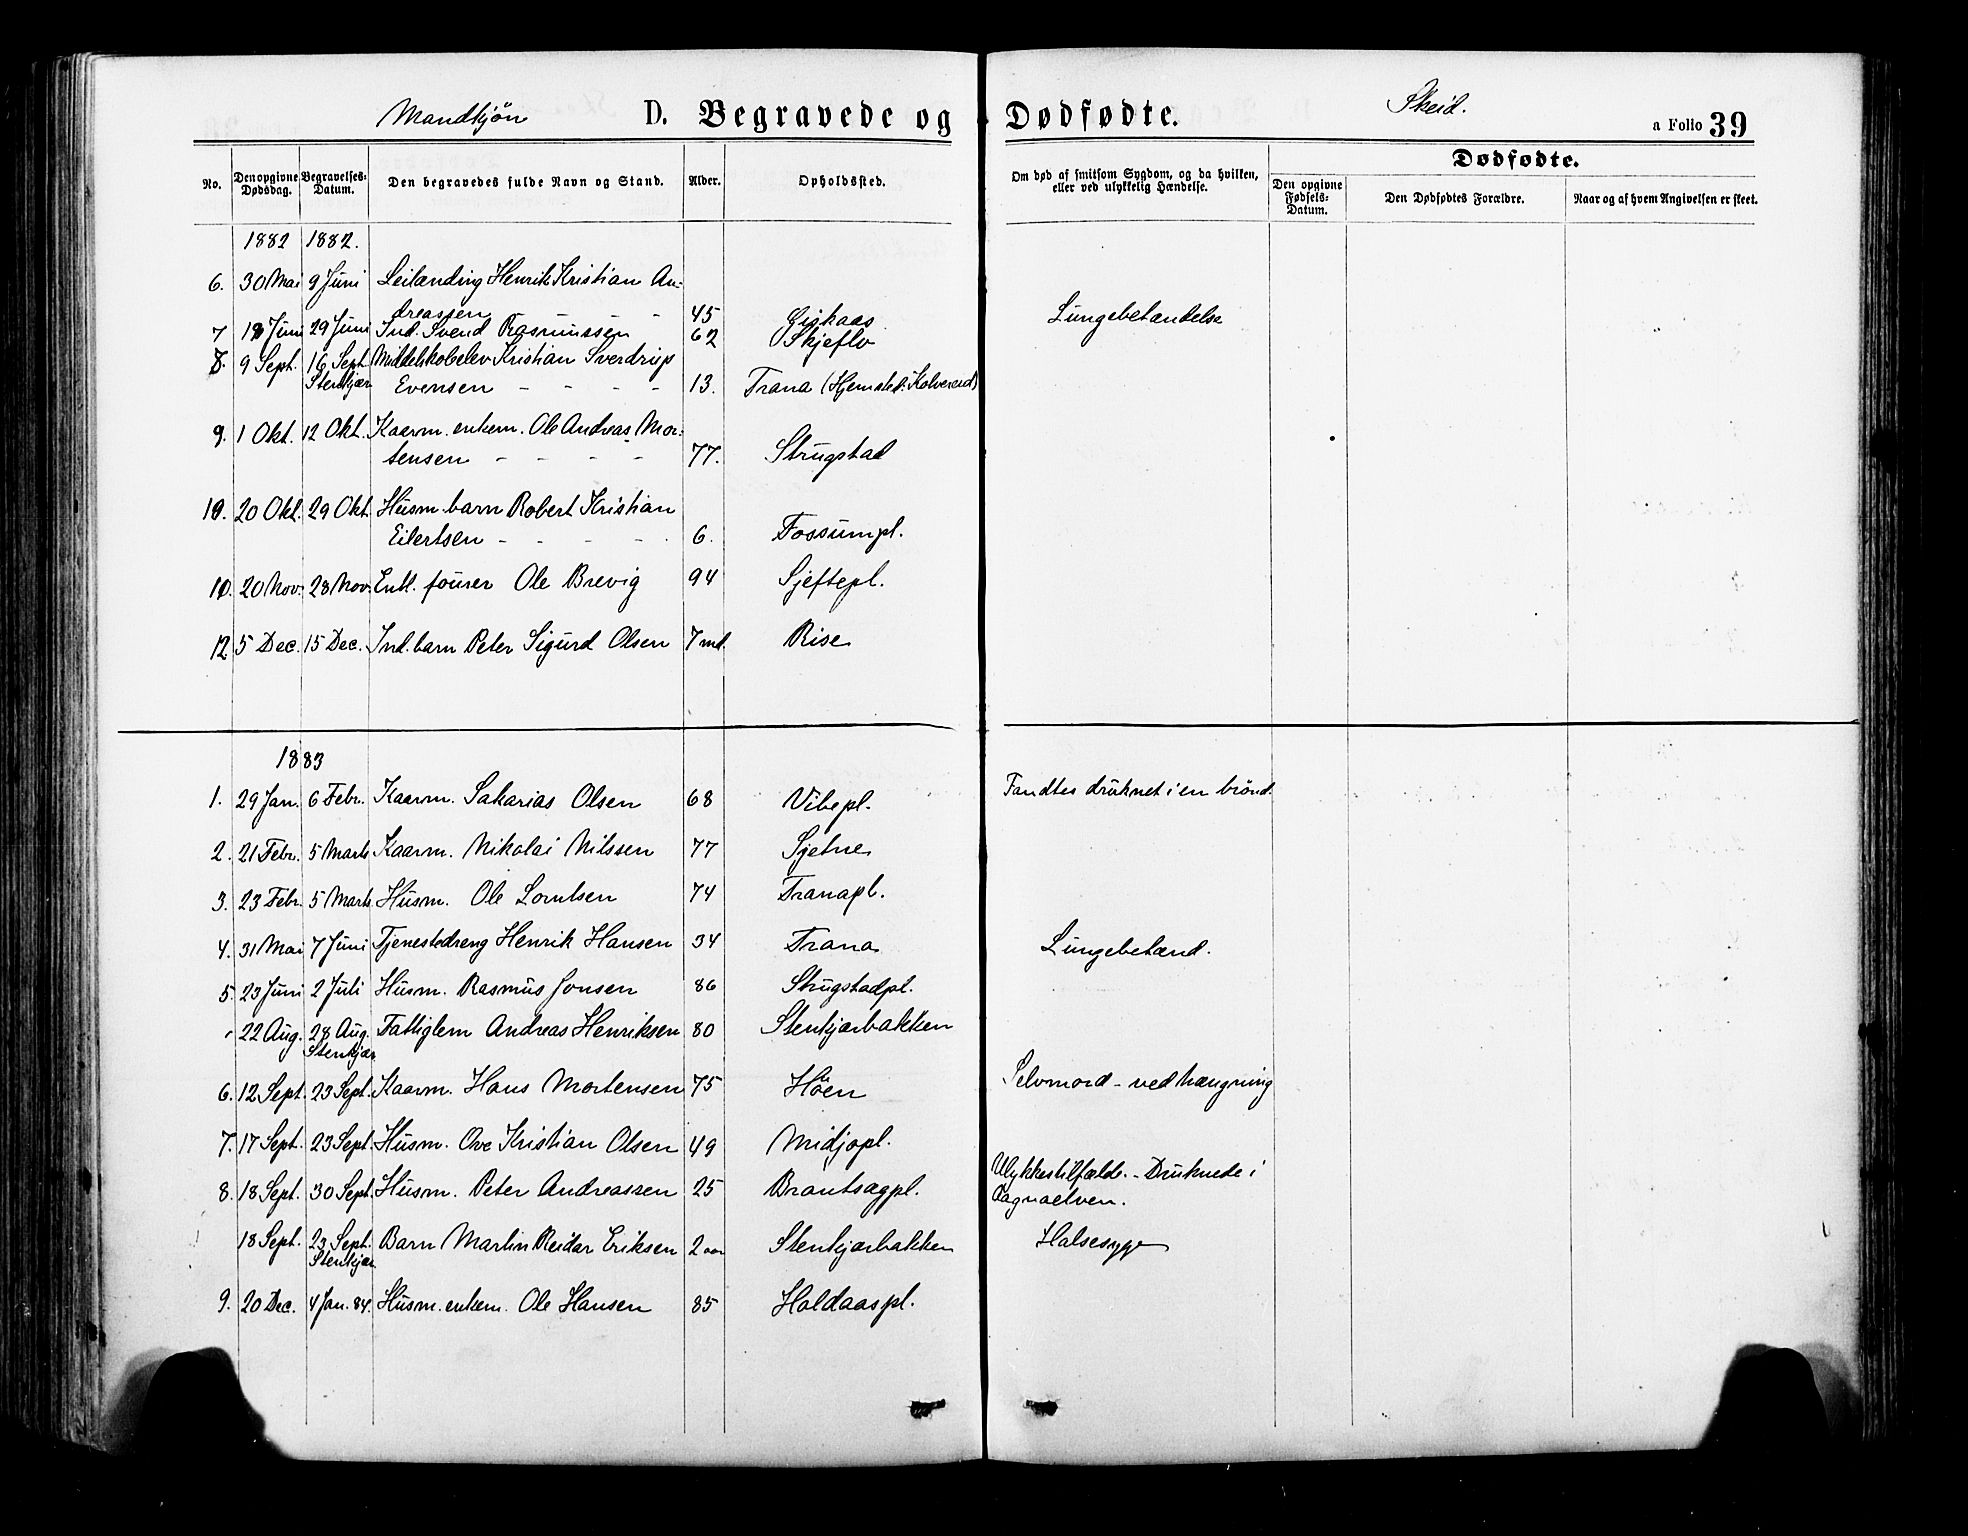 Mandkjön D. Begravede og Dødfødte. Skeid. a Folio 39
No. Den opgivne Dødsdag. Begravelses-Datum. Den begravedes fulde Navn og Stand. Alder. Opholdssted. Om død af smitsom Sygdom, og da hvilken, eller ved ulykkelig Hændelse. Dødfødte.
Den opgivne Fødsels-Datum. Den Dødfødtes Forældre. Naar og af hvem Angivelsen er skeet.
1882 1882.
6. 30 Mai 9 Juni Leilænding Henrik Kristian An-
dreassen - - 45 Giskaas Lungebetændelse
7 18 Juni 29 Juni Ind. Svend Rasmussen 62 Skjeflo
8. 9 Sept. 16 Sept. Middelskoleelev Kristian Sverdrup
Stenkjær Evensen - - - - 13. Trana (Hjemsted: Kolvereid)
9. 1 Okt. 12 Okt. Kaarm. enkem. Ole Andreas Mor-
tensen - - - - 77. Strugstad
10. 20 Okt. 29 Okt. Husm. barn Robert Kristian
Eilertsen - - - - 6. Fossumpl.
11. 20 Nov. 28 Nov. Entl. fourer Ole Brevig 94 Sjeftepl.
12 5 Dec. 15 Dec. Ind. barn Peter Sigurd Olsen 7 md. Rise
1883
1. 29 Jan. 6 Febr. Kaarm. Sakarias Olsen 68 Vibepl. Fandtes druknet i en brönd.
2. 21 Febr. 5 Marts Kaarm. Nikolai Nilssen 77 Sjetne
3. 23 Febr. 5 Marts Husm. Ole Lorntsen 74 Tranapl.
4. 31 Mai 7 Juni Tjenestedreng Henrik Hansen 34 Trana Lungebetænd.
5. 23 Juni 2 Juli Husm. Rasmus Jonsen 86 Strugstadpl.
22 Aug. 28 Aug. Fattiglem Andreas Henriksen 80 Stenkjærbakken
Stenkjær
6. 12 Sept. 23 Sept. Kaarm. Hans Mortensen 75 Höen Selvmord - ved hængning
7. 17 Sept. 23 Sept. Husm. Ove Kristian Olsen 49 Midjopl.
8. 18 Sept. 30 Sept. Husm. Peter Andreassen 25 Brandsegpl. Ulykkestilfælde. - Druknede i
Oagnaelven.
18 Sept. 23 Sept. Barn Martin Reidar Eriksen 2 aar Stenkjærbakken Halsesyge
Stenkjær
9. 20 Dec. 4 Jan. 84. Husm. enkem. Ole Hansen 85 Haldaaspl.